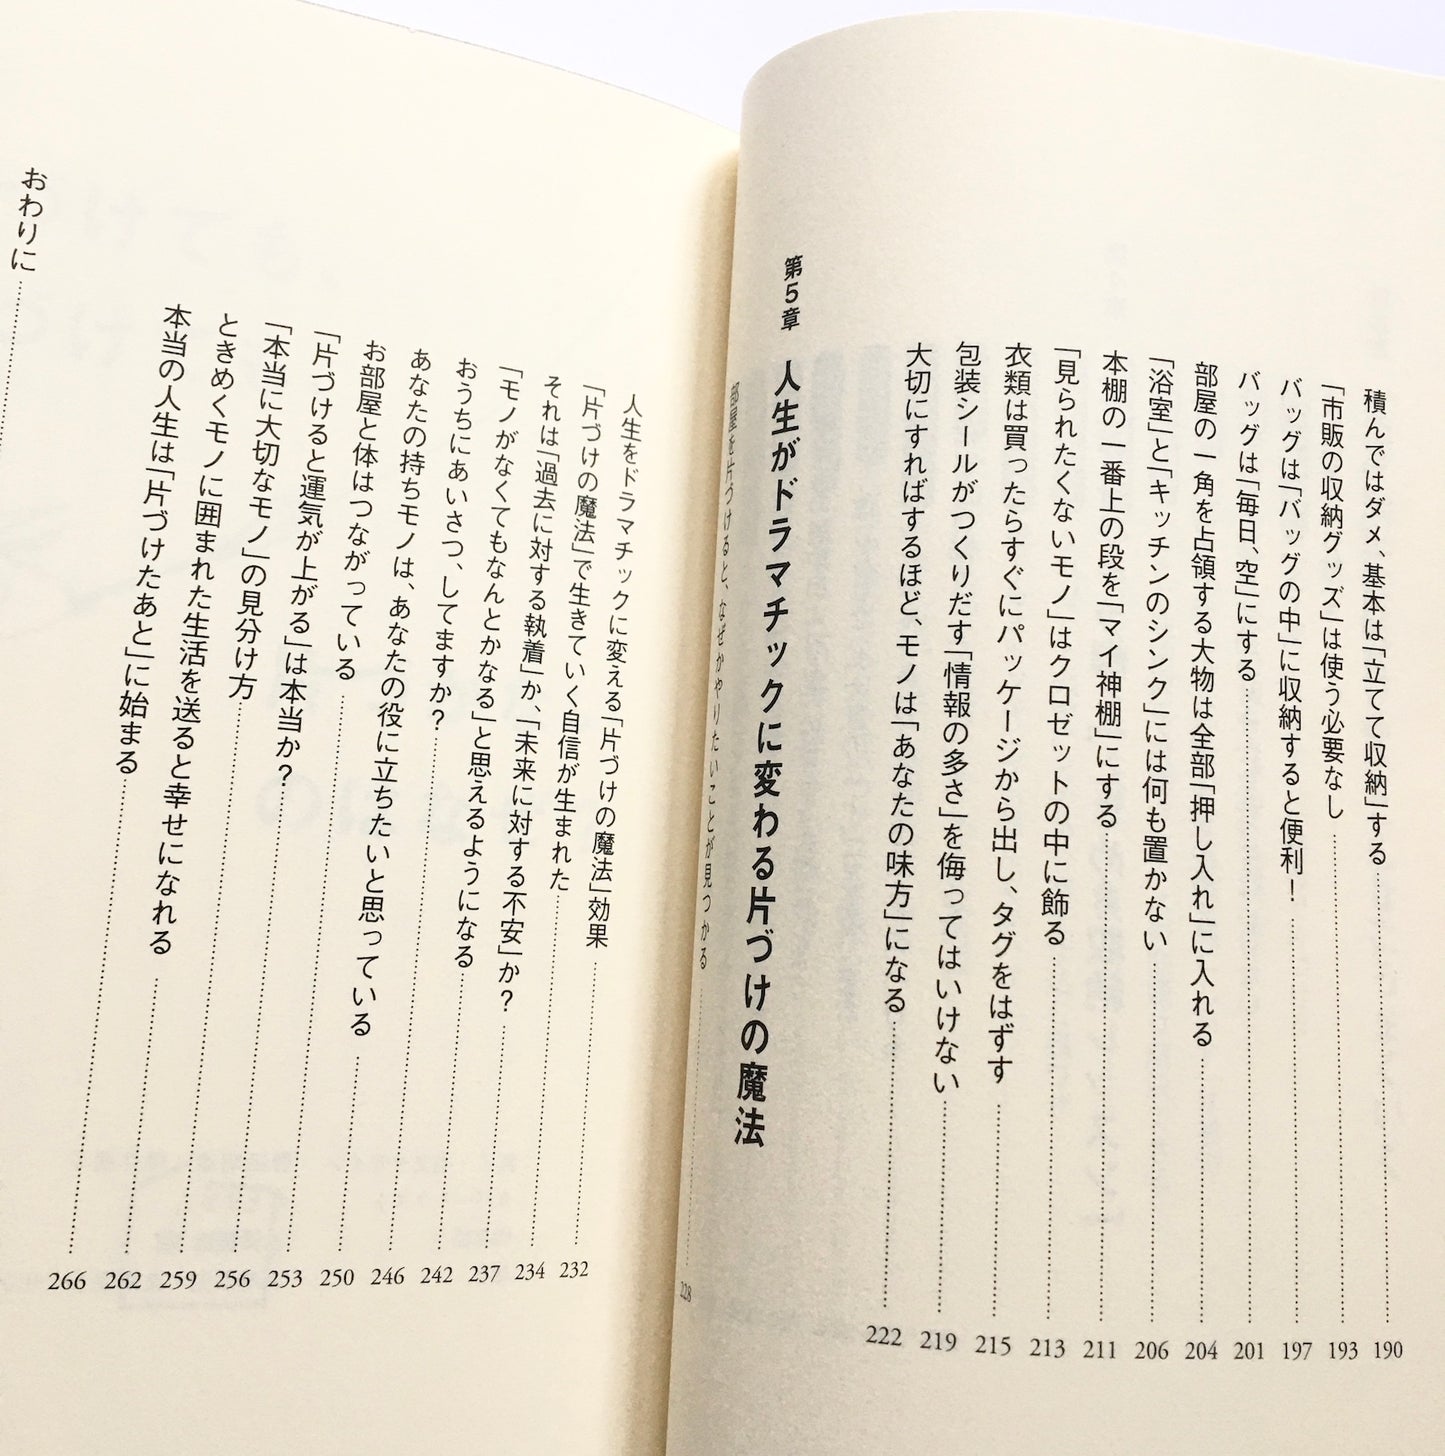 積んではダメ、基本は「立てて収納」する 190
「市販の収納グッズ」は使う必要なし 193
バッグは「バッグの中」に収納すると便利！ 197
バッグは「毎日、空」にする 201
部屋の一角を占領する大物は全部「押し入れ」に入れる 204
「浴室」と「キッチンのシンク」には何も置かない 206
本棚の一番上の段を「マイ神棚」にする 211
「見られたくないモノ」はクロゼットの中に飾る 213
衣類は買ったらすぐにパッケージから出し、タグをはずす 215
包装シールがつくりだす「情報の多さ」を侮ってはいけない 219
大切にすればするほど、モノは「あなたの味方」になる 222
第5章 人生がドラマチックに変わる片づけの魔法
部屋を片づけると、なぜかやりたいことが見つかる 228
人生をドラマチックに変える「片づけの魔法」効果 232
「片づけの魔法」で生きていく自信が生まれた 234
それは「過去に対する執着」か、「未来に対する不安」か？ 237
「モノがなくてもなんとかなる」と思えるようになる 242
おうちにあいさつ、してますか？ 246
あなたの持ちモノは、あなたの役に立ちたいと思っている 250
お部屋と体はつながっている 253
「片づけると運気が上がる」は本当か？ 256
「本当に大切なモノ」の見分け方 259
ときめくモノに囲まれた生活を送ると幸せになれる 262
本当の人生は「片づけたあと」に始まる 266
おわりに